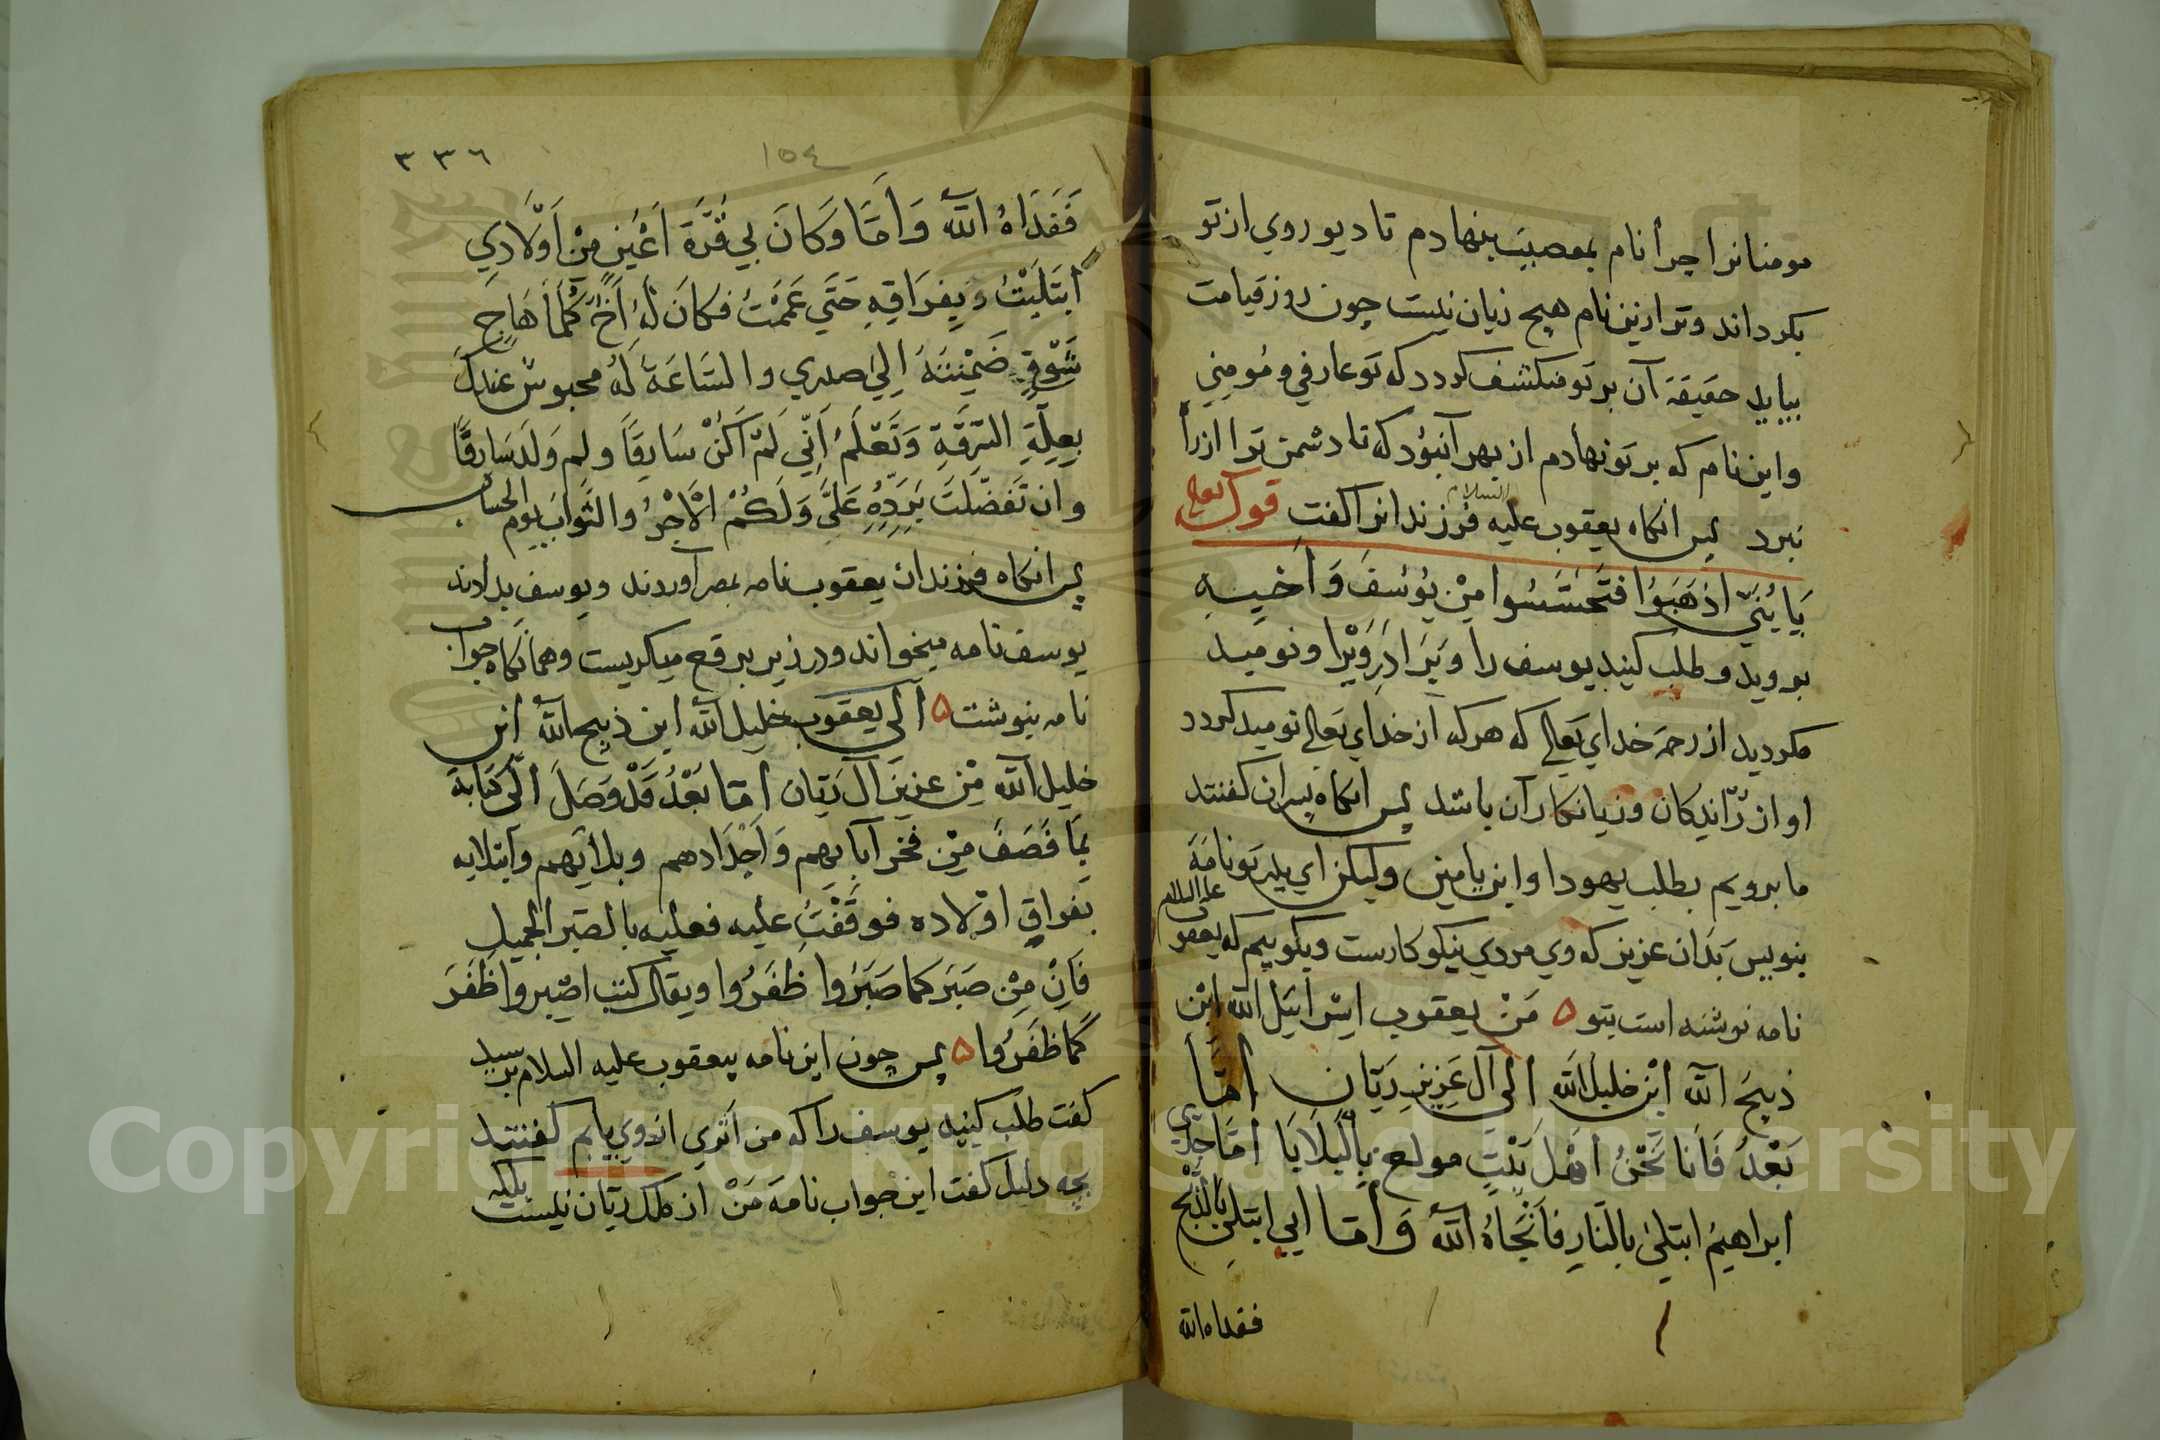 مومنانرا چرا نام بمعصیت بنهادم تا دیو روی از تو
بکرداند وترا ازین نام هیچ زیان نیست چون روز قیامت
بیاید حقیقة آن بر تو منکشف کردد که تو عارفی و مُومِنی
واین نام که بر تو نهادم از بهر آنبود که تا دشمن ترا از راه
نبرد پس انکاه یعقوب علیه السلام فرزندانرا کفت قوله تعالی
یَا بُنَیَّ اذهَبُوا فَتَحَسَّسُوا مِنْ یُوسُفَ وَأَخِیهِ
بروید و طلب کنید یوسف را و بَرَادَرِ وَیْرا و نومید
مکردید از رحمة خدای تعالی که هرکه از خدای تعالی نومید کردد
او از رانیدکان و زیانکاران باشد پس انکاه پسران کفتند
ما برویم بطلب یهودا وابن یامین ولیکن ای پدر تو نامَهَ
بنویس بدان عزیز که وی مردی نیکوکارست وبکوییم که یعقوب علیه السلام
نامه نوشته است بتو ه مَنْ یعقوب اِسْرائیل الله ابْن
ذبیحَ الله ابْن خلیل الله الی آل عَزِیزِ رَیّان امّا
بَعْدُ فَاَنا نَحْنُ اهْلَ بَیْتٍ مولع بِالْبَلَایَا امّا جدّی
ابراهیمُ ابتلیٰ بالنّارِ فَاَنْجَاهُ اللهُ وَأمّا ابی ابتلی بالذَّبْح
فقداه الله
١٥٤
٣٣٦
فَقَدَاهُ اللهُ وَاَمّا وَکَانَ لِی قُرَّةَ اَعْیُنٍ مِنْ اَوْلَادِی
ابتَلَیْتُ وَبِفرَاقِهِ حَتّی عَمَمْتُ فکَانَ لَهُ اَخٌ کُلَّمَا هَاجَ
شَوْقِی ضَمَّیْتُهُ اِلیٰ صدری والسَاعَةَ لهُ محبوسٌ عندکَ
بِعِلَّةِ السَّرَقَةِ وَتَعْلَمُ اَنّی لَمْ اَکُنْ سَارِقًا ولم وَلَدَ سَارِقًا
وان تَفَضَّلتَ بِرَدِّهِ عَلَیَّ وَلَکُمْ الْاَجْرُ والثَوَابَ یوم الحساب
پس انکاه فرزندان یعقوب نامه بمصر آوردند و بیوسف بدادند
یوسف نامه میخواند و در زیر برقع میکریست و همانکاه جواب
نامه بنوشت ه الی یعقوب خلیل الله ابن ذبیح الله ابن
خلیل الله مِن عزیز آل رَیّان امّا بَعْدُ قَدْ وَصَلَ اِلَیّ کتَابهَ
بِمَا فَصَفَ مِنْ فخر آبایهم وَاَجْدَادهم وبلایَهم وابتلایه
بفراقِ اوْلاده فوقَفْتُ علیه فعلیه بالصَبر الجمیلِ
فَاِنْ مَنْ صَبَر کما صَبَرُوا ظفَرُوا ویقال کتب اصْبِروا ظَفَرَ
کَمَا ظَفَرُوا ه پس چون این نامه بیعقوب علیه السلام برسید
کفت طلب کنید یوسف را که من اثری ازوی یابم کفتند
بچه دلیل کفت این جواب نامهَ مَنْ از ملک ریّان نیست بلکه